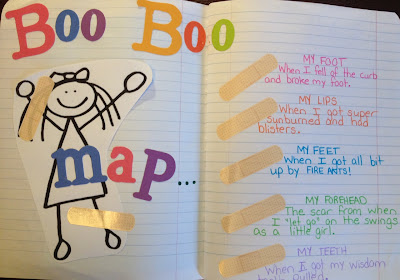 Boo Boo
map...
MY FOOT
When I fell of the curb
and broke my foot.
MY LIPS
When I got super
sunburned and had
blisters.
MY FEET
When I got all bit
up by FIRE ANTS!
MY FOREHEAD
The scar from when
I "let go" on the swings
as a little girl.
MY TEETH
When I got my wisdom
teeth pulled.